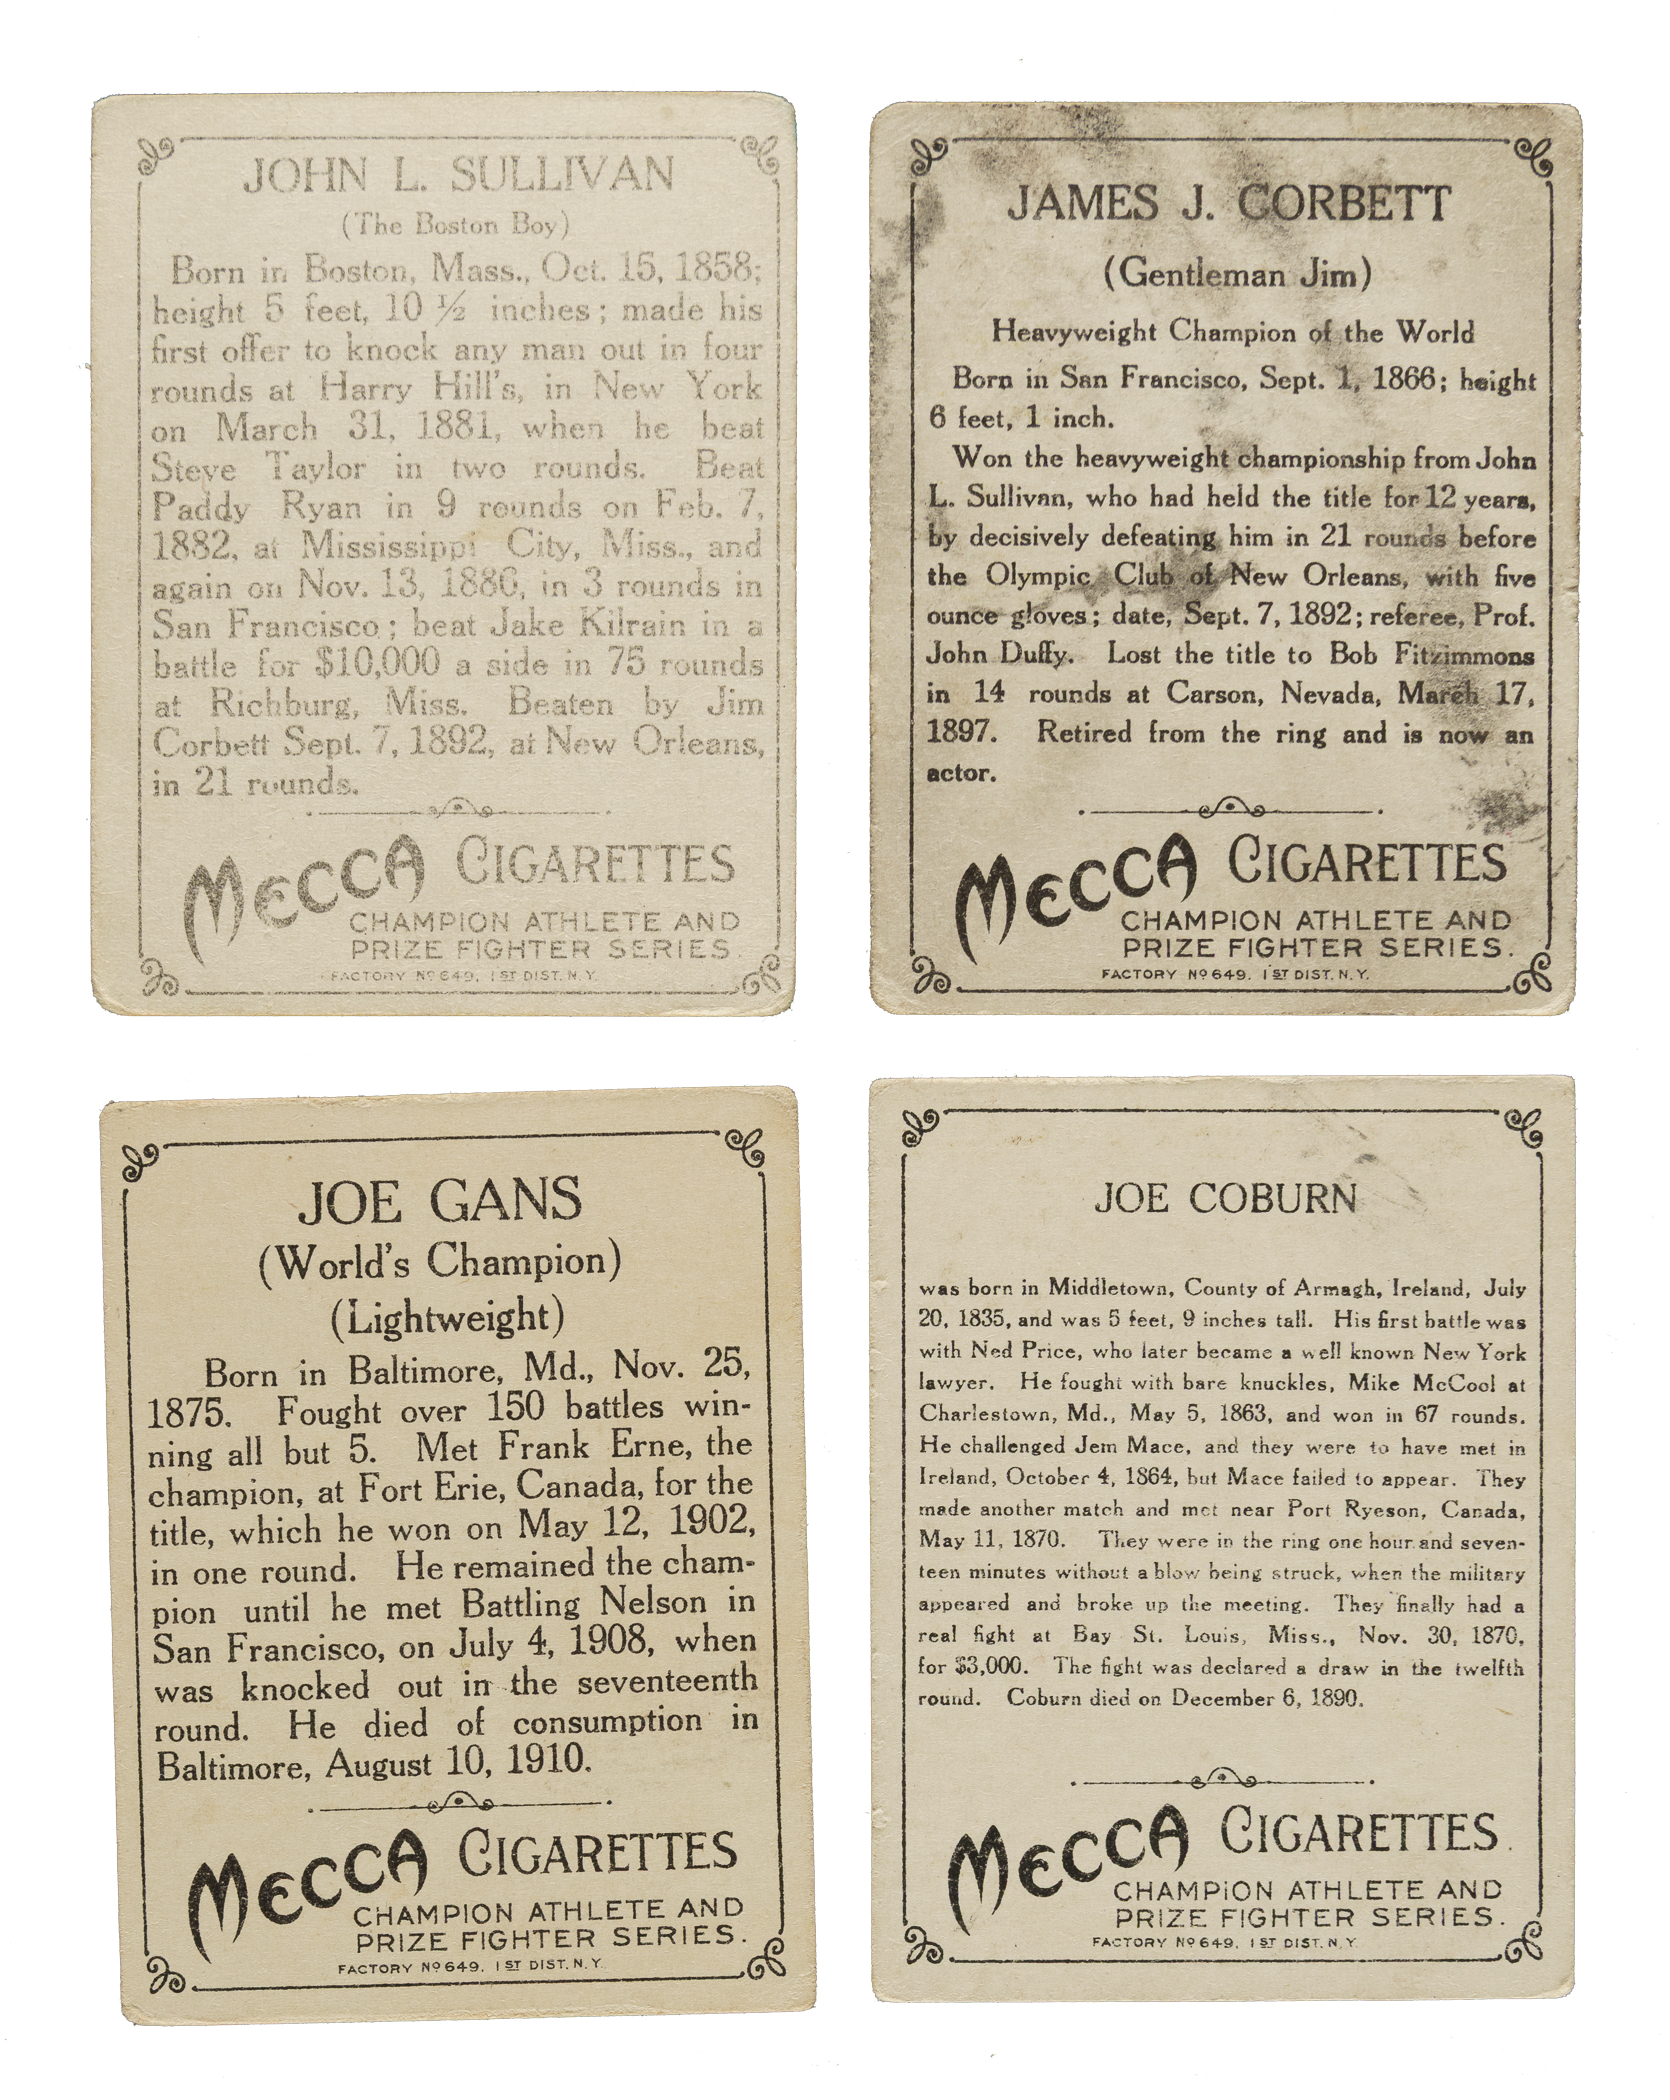 JOHN L. SULLIVAN
(The Boston Boy)
Born in Boston, Mass., Oct. 15, 1858;
height 5 feet, 10 ½ inches; made his
first offer to knock any man out in four
rounds at Harry Hill's, in New York
on March 31, 1881, when he beat
Steve Taylor in two rounds. Beat
Paddy Ryan in 9 rounds on Feb. 7,
1882, at Mississippi City, Miss., and
again on Nov. 13, 1886, in 3 rounds in
San Francisco; beat Jake Kilrain in a
battle for $10,000 a side in 75 rounds
at Richburg, Miss. Beaten by Jim
Corbett Sept. 7, 1892, at New Orleans,
in 21 rounds.
MECCA CIGARETTES
CHAMPION ATHLETE AND
PRIZE FIGHTER SERIES.
FACTORY Nº 649, 1ST DIST. N.Y.
JAMES J. CORBETT
(Gentleman Jim)
Heavyweight Champion of the World
Born in San Francisco, Sept. 1, 1866; height
6 feet, 1 inch.
Won the heavyweight championship from John
L. Sullivan, who had held the title for 12 years,
by decisively defeating him in 21 rounds before
the Olympic Club of New Orleans, with five
ounce gloves; date, Sept. 7, 1892; referee, Prof.
John Duffy. Lost the title to Bob Fitzimmons
in 14 rounds at Carson, Nevada, March 17,
1897. Retired from the ring and is now an
actor.
MECCA CIGARETTES
CHAMPION ATHLETE AND
PRIZE FIGHTER SERIES.
FACTORY Nº 649, 1ST DIST. N.Y.
JOE GANS
(World's Champion)
(Lightweight)
Born in Baltimore, Md., Nov. 25,
1875. Fought over 150 battles win-
ning all but 5. Met Frank Erne, the
champion, at Fort Erie, Canada, for the
title, which he won on May 12, 1902,
in one round. He remained the cham-
pion until he met Battling Nelson in
San Francisco, on July 4, 1908, when
was knocked out in the seventeenth
round. He died of consumption in
Baltimore, August 10, 1910.
MECCA CIGARETTES
CHAMPION ATHLETE AND
PRIZE FIGHTER SERIES.
FACTORY Nº 649, 1ST DIST. N.Y.
JOE COBURN
was born in Middletown, County of Armagh, Ireland, July
20, 1835, and was 5 feet, 9 inches tall. His first battle was
with Ned Price, who later became a well known New York
lawyer. He fought with bare knuckles, Mike McCool at
Charlestown, Md., May 5, 1863, and won in 67 rounds.
He challenged Jem Mace, and they were to have met in
Ireland, October 4, 1864, but Mace failed to appear. They
made another match and met near Port Ryeson, Canada,
May 11, 1870. They were in the ring one hour and seven-
teen minutes without a blow being struck, when the military
appeared and broke up the meeting. They finally had a
real fight at Bay St. Louis, Miss., Nov. 30, 1870,
for $3,000. The fight was declared a draw in the twelfth
round. Coburn died on December 6, 1890.
MECCA CIGARETTES.
CHAMPION ATHLETE AND
PRIZE FIGHTER SERIES.
FACTORY Nº 649, 1ST DIST. N.Y.